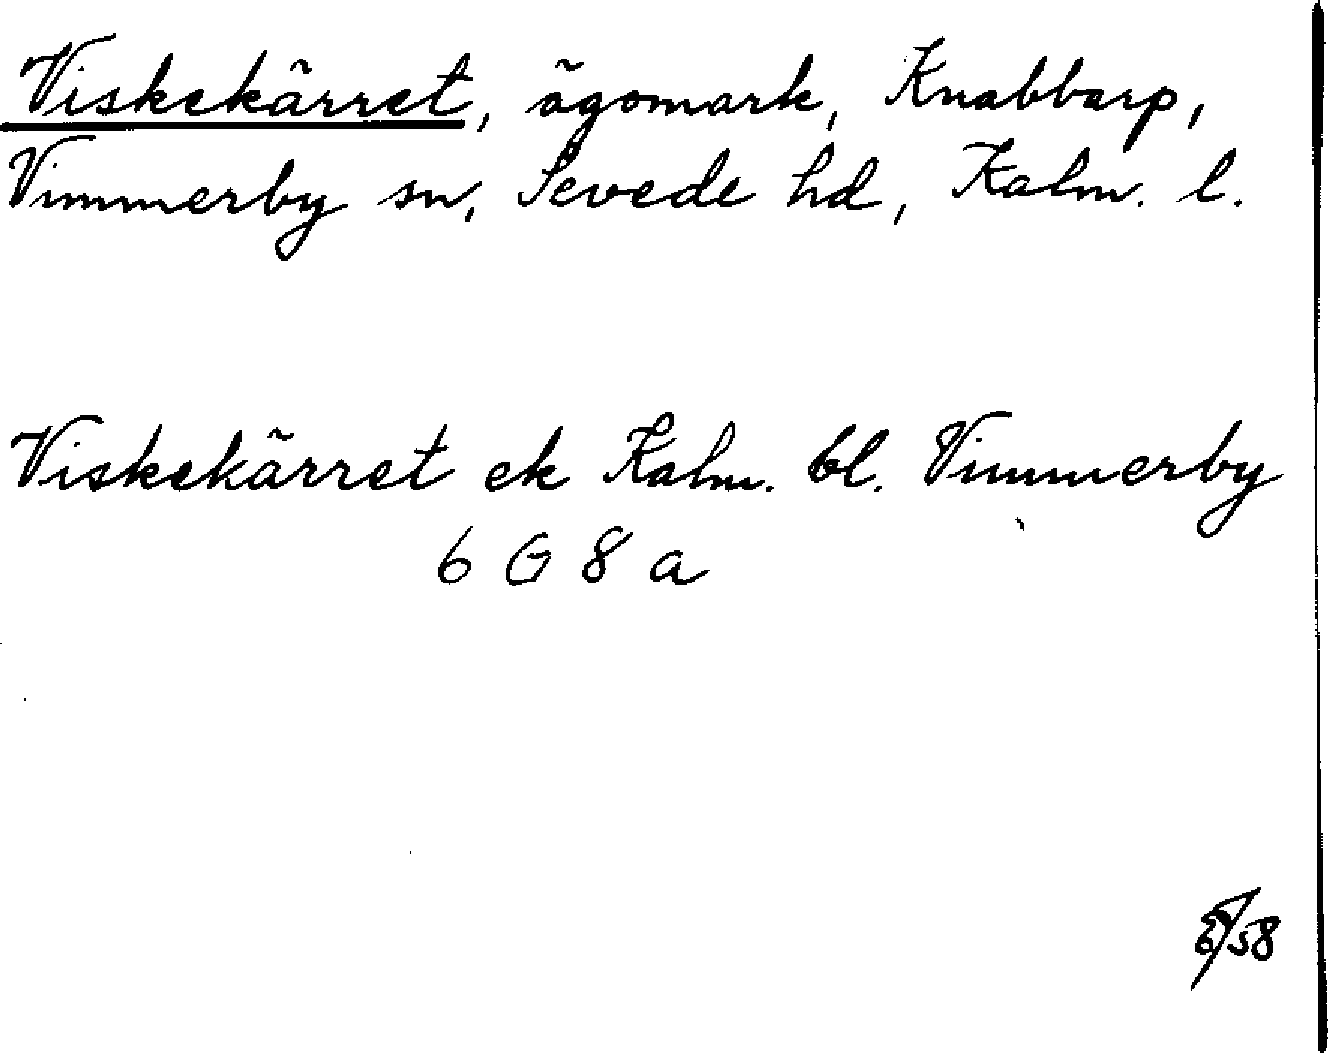 Viskekärret, ägomark, Knabbarp,
Vimmerby sn, Sevede hd, Kalm. l.
Viskekärret ek Kalm. bl. Vimmerby
6 G 8 a